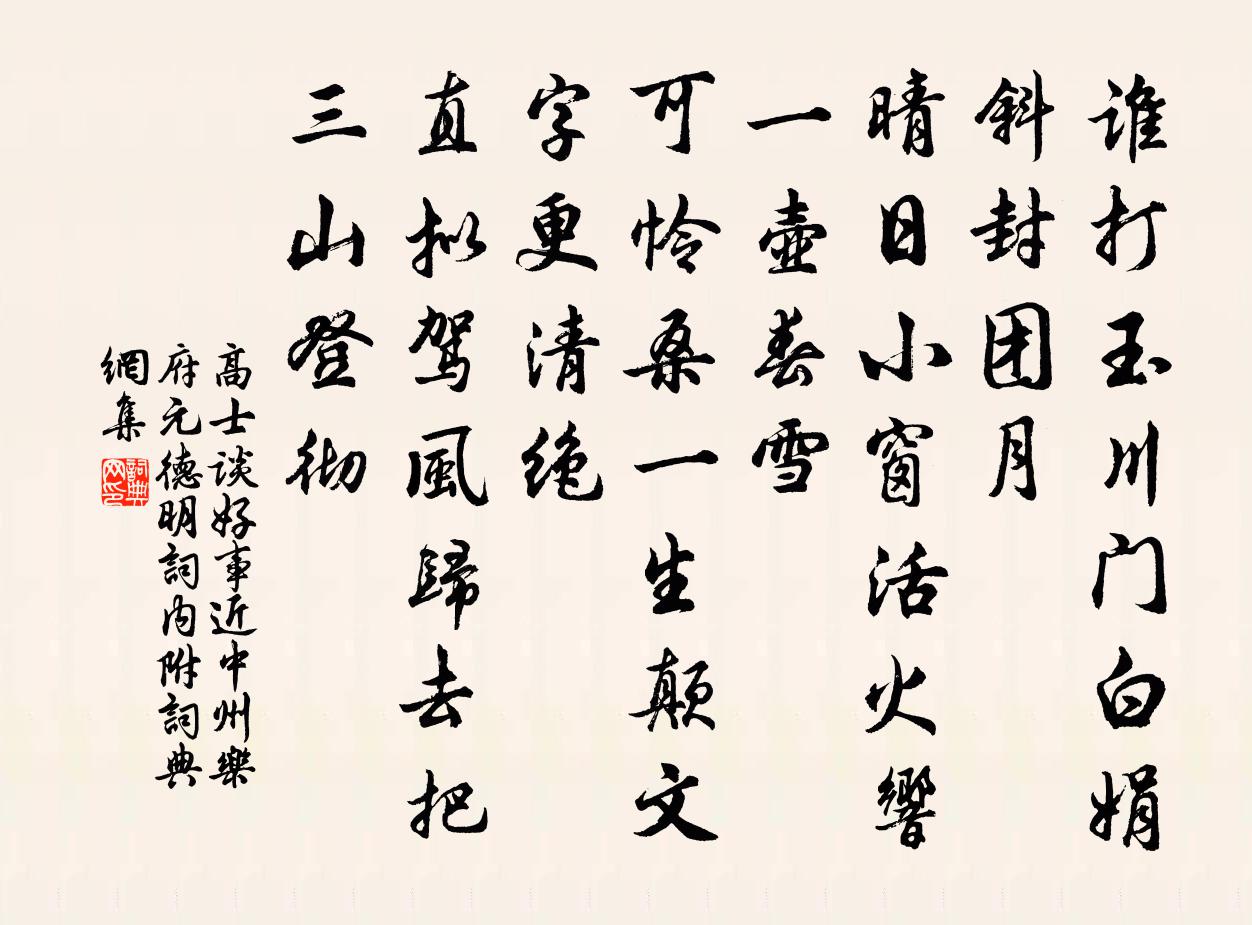 谁打玉川门白娟
斜封团月
晴日小窗活火響
一壶春雪
可怜桑一生颠文
字更清绝
直拟驾風歸去把
三山登彻
高士谈好事近中州樂
府元德明詞内附詞典
網集
詞典
网印